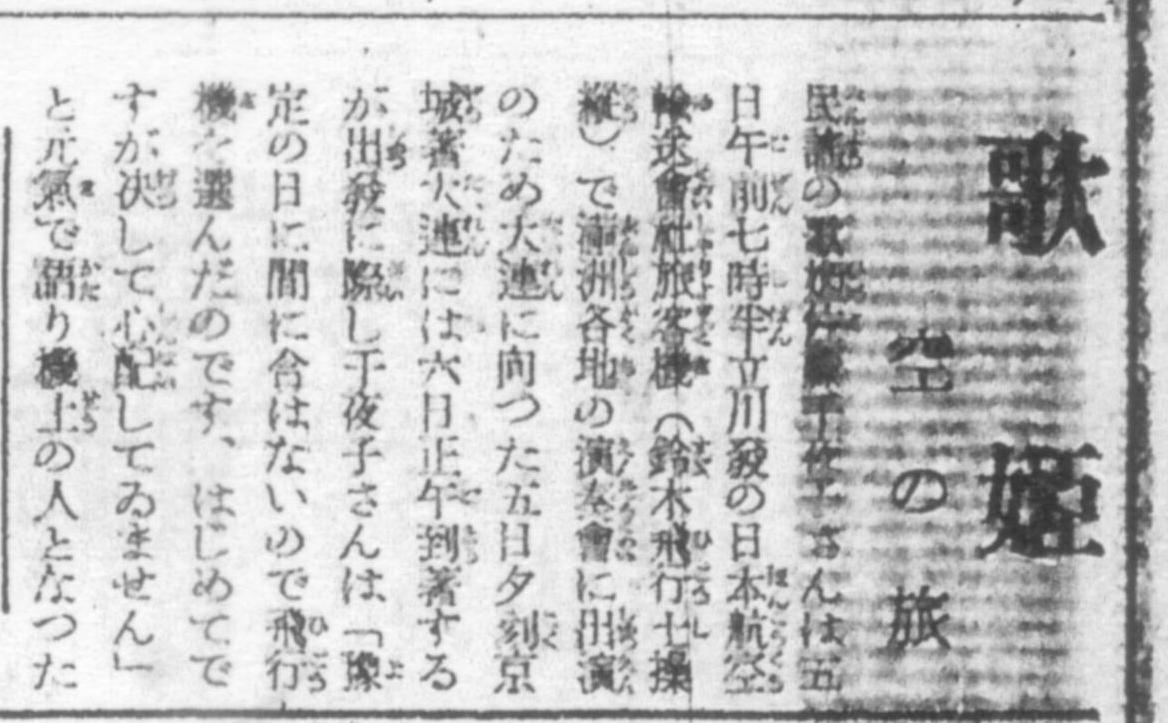 歌姫
空の旅
民謡の歌姫佐藤千夜子さんは五
日午前七時半立川發の日本航空
輸送會社旅客機（鈴木飛行士操
縦）で滿洲各地の演奏會に出演
のため大連に向つた五日夕刻京
城著大連には六日正午到著する
が出發に際し千夜子さんは「豫
定の日に間に合はないので飛行
機を選んだのです、はじめてで
すが決して心配してゐません」
と元氣で語り機上の人となつた